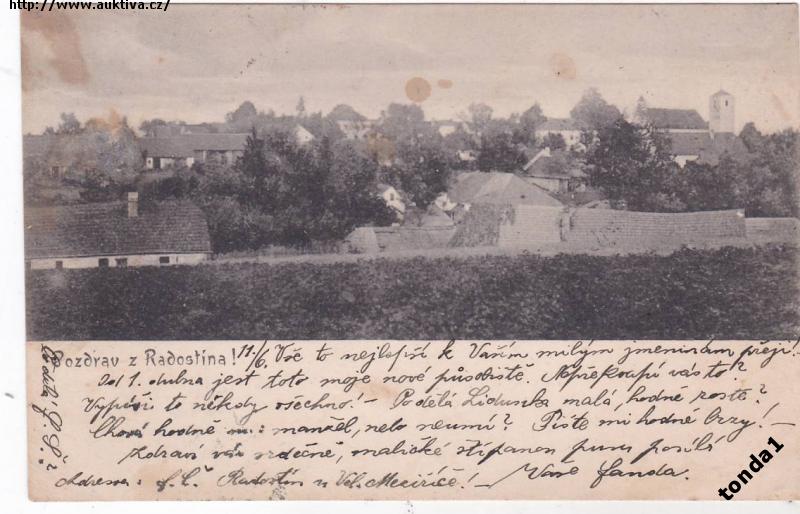 http://www.auktiva.cz/
Pozdrav z Radostína! 11/6 Vše to nejlepší k Vašim milým jmeninám přejí!
Od 1. dubna jest toto moje nové působiště. Nepřekvapí vás to?
Vypíši to někdy všechno! - Co dělá Liduška malá, hodně roste?
Chová hodně m: manžel, nebo neumí? Pište mi hodně brzy! -
Zdraví vás srdečně, maličké
posílá
Adressa: Radostín u Vel. Meziříčí! - Vaše Fanda.
tonda1